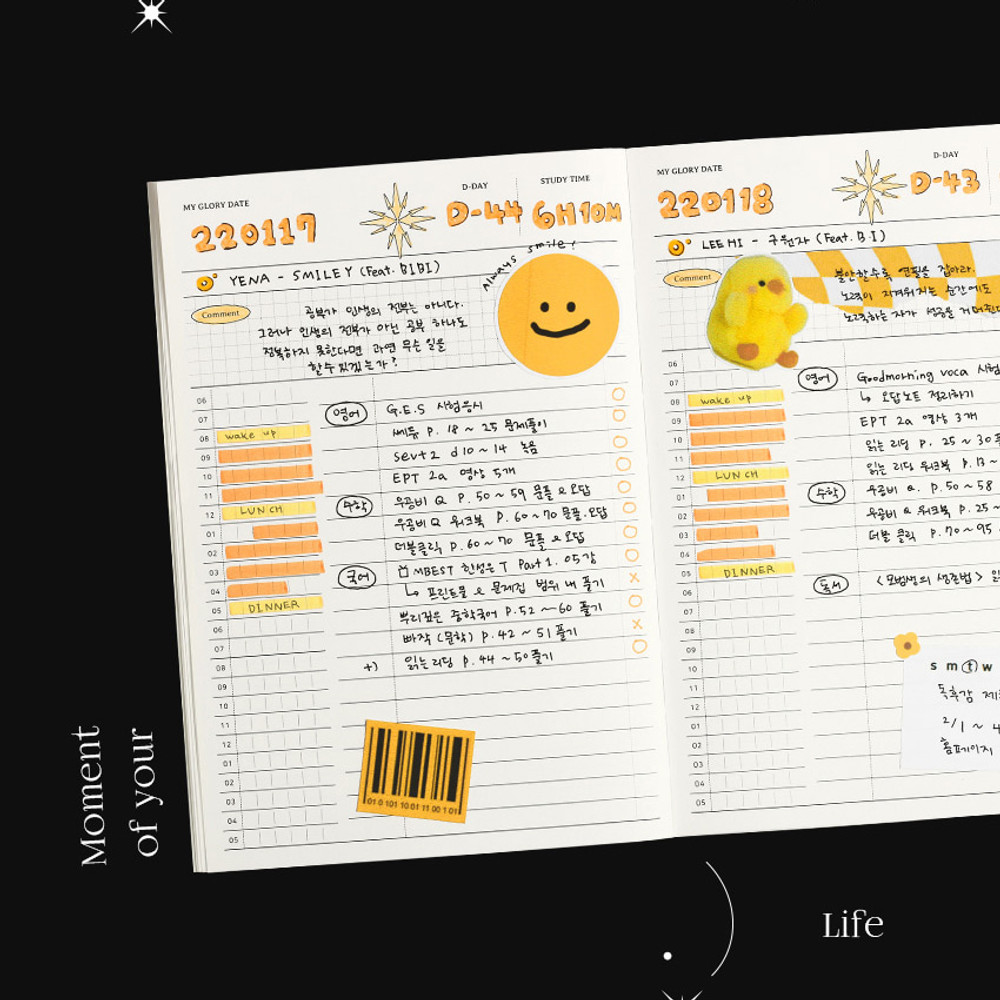 MY GLORY DATE
D-DAY
STUDY TIME
220117
D-44
6H10M
YENA - SMILEY (Feat. BIBI)
Always smile!
Comment
공부가 인생의 전부는 아니다.
그러나 인생의 전부가 아닌 공부 하나도
정복하지 못한다면 과연 무슨 일을
할 수 있겠는가?
06
07
08 wake up
09
10
11
12 LUNCH
01
02
03
04
05 DINNER
06
07
08
09
10
11
12
01
02
03
04
05
영어 G.E.S 시험응시 O
쎄듀 P. 18 ~ 25 문제풀이 O
sevt2 d10 ~ 14 녹음 O
EPT 2a 영상 5개 O
수학 우공비 Q P. 50 ~ 59 문풀 & 오답 O
우공비 Q 워크북 P. 60 ~ 70 문풀. 오답 O
더블클릭 P. 60 ~ 70 문풀 & 오답 O
국어 MBEST 한성은 T Part 1. 05강 O
↳ 프린트물 & 문제집 범위 내 풀기 X
뿌리깊은 중학국어 P. 52 ~ 60 풀기 O
빠작 (문학) P. 42 ~ 51 풀기 X
+) 읽는 리딩 P. 44 ~ 50 풀기 O
01 0 101 10 01 11 00 1 01
MY GLORY DATE
D-DAY
220118
D-43
LEE HI - 구원자 (Feat. B.I)
Comment
불안할수록 연필을 잡아라.
노력이 지겨워지는 순간에도
노력하는 자가 성공을 거머쥔다
06
07
09 wake up
09
10
11
12 LUNCH
01
02
03
04
05 DINNER
06
07
08
09
10
11
12
01
02
03
04
05
영어 Goodmorning voca 시험
↳ 오답노트 정리하기
EPT 2a 영상 3개
읽는 리딩 P. 25 ~ 30
읽는 리딩 워크북 P. 13 ~
수학 우공비 Q. P. 50 ~ 58
우공비 Q 워크북 P. 25 ~
더블 클릭 P. 70 ~ 95
독서 <모범생의 생존법>
s m t w
독후감 제
2/1 ~ 4
홈페이지
Moment
of your
Life